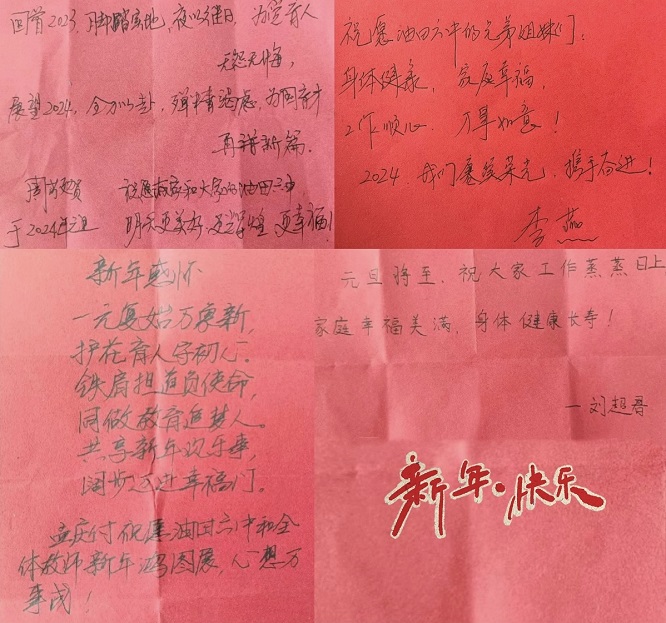 回首2023，脚踏实地，夜以继日，为党育人
无怨无悔，
展望2024，全力以赴，殚精竭虑，为国育才
再谱新篇。
祝愿 和大家的油田六中
于2024年元旦 明天更美好，更辉煌，更幸福！
祝愿油田六中的兄弟姐妹们：
身体健康，家庭幸福，
工作顺心，万事如意！
2024，我们赓续荣光，携手奋进！
李燕
新年感怀
一元复始万象新，
护花育人守初心。
铁肩担道负使命，
同做教育追梦人。
共享新年欢乐事，
阔步迈进幸福门。
孟庆付祝愿油田六中和全
体教师新年鸿图展，心想万
事成！
元旦将至，祝大家工作蒸蒸日上
家庭幸福美满，身体健康长寿！
—刘超
新年·快乐